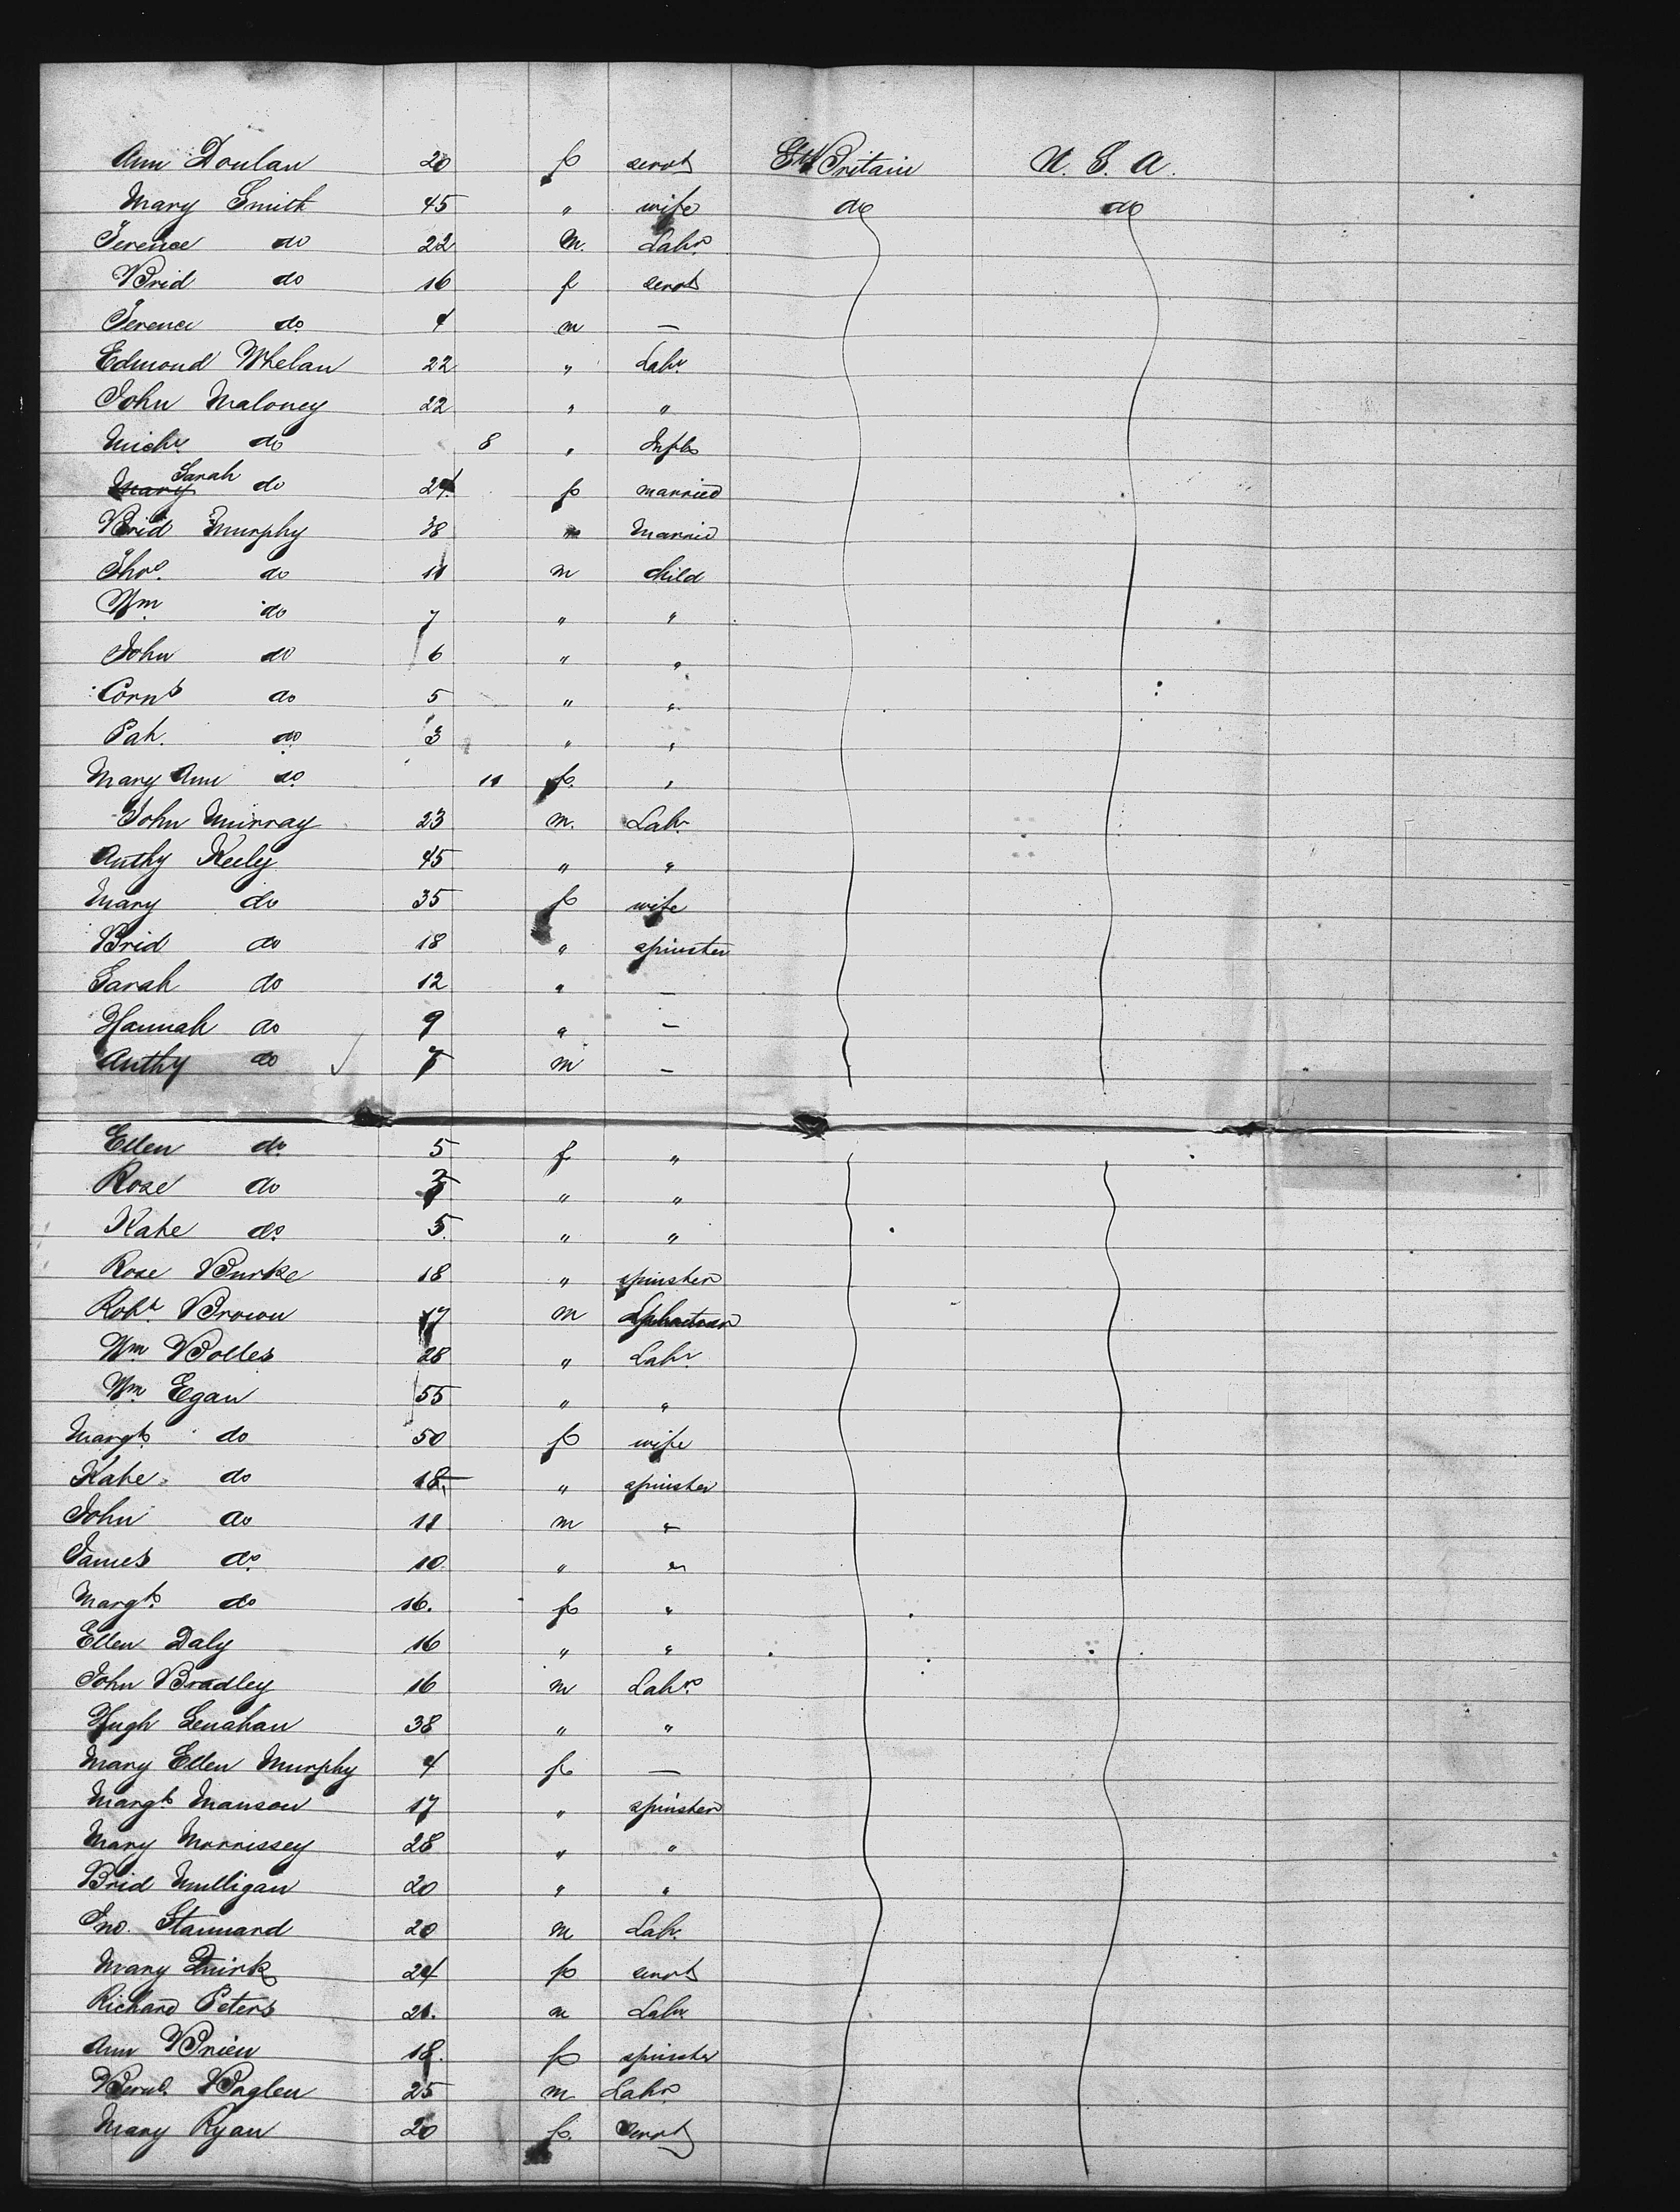 Ann Doulan 20 f servt Gt Britain U. S. A.
Mary Smith 45 " wife do do
Terence do 22 M. Labr
Brid do 16 f servt
Terence do 4 m —
Edmond Whelan 22 " Labr
John Maloney 22 " "
Michl do 8 " Inft
Mary Sarah do 24 f married
Brid Murphy 38 married
Thos. do 11 m child
Wm. do 7 " "
John do 6 " "
Corns do 5 " "
Pat. do 3 " "
Mary Ann do 11 f. "
John Murray 23 m. Labr
Anthy Keely 45 " "
Mary do 35 f wife
Brid do 18 " spinster
Sarah do 12 " —
Hannah do 9 " —
Anthy do 7 m —
Ellen do. 5 f "
Rose do " "
Kate do. 5. " "
Rose Burke 18 " spinster
Robt. Brown 17 m
Wm Bolles 28 " Labr
Wm. Egan 55 " "
Margt. do 50 f wife
Kate do 18 " spinster
John do 11 m "
James do. 10 " "
Margt. do 16. f "
Ellen Daly 16 " "
John Bradley 16 m Labr
Hugh Lenahan 38 " "
Mary Ellen Murphy 4 f —
Margt Manson 17 " spinster
Mary Morrissey 28 " "
Brid Mulligan 20 " "
Jno. Stannard 20 m Labr.
Mary Quirk 24 f servt
Richard Peters 21. m Labr
Ann Brien 18. f spinster
25 m Labr
Mary Ryan 20 f. servt